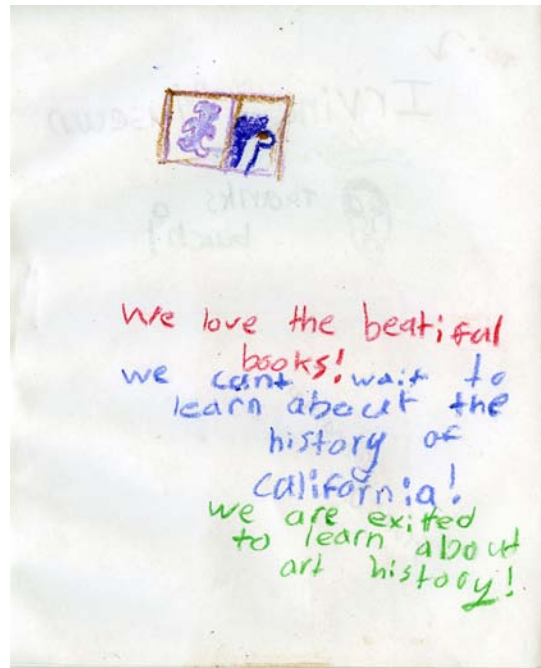 We love the beatiful
books!
we cant wait to
learn about the
history of
California!
we are exited
to learn about
art history!